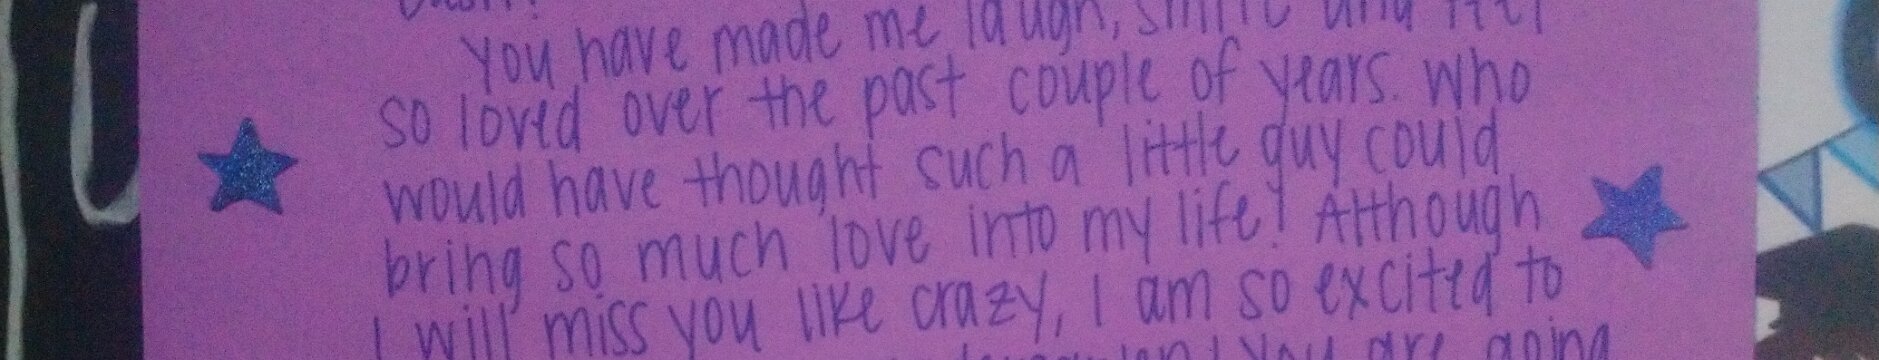 You have made me laugh, smile and feel
so loved over the past couple of years. Who
would have thought such a little guy could
bring so much love into my life! Although
I will miss you like crazy, I am so excited to
you are going